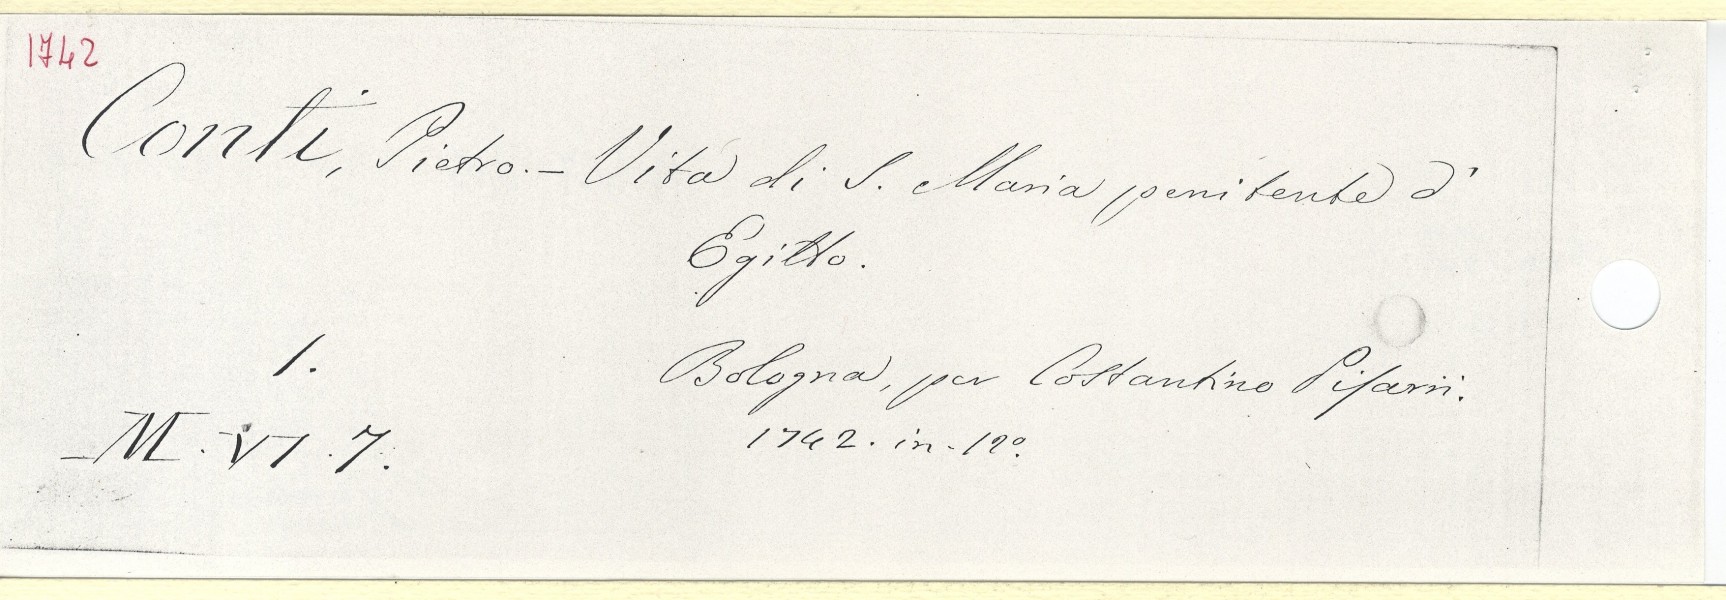 1742
Conti, Pietro. - Vita di S. Maria penitente d'
Egitto.
1.
Bologna, per Costantino Pisarri.
M. VI. 7.
1742. in-12º.